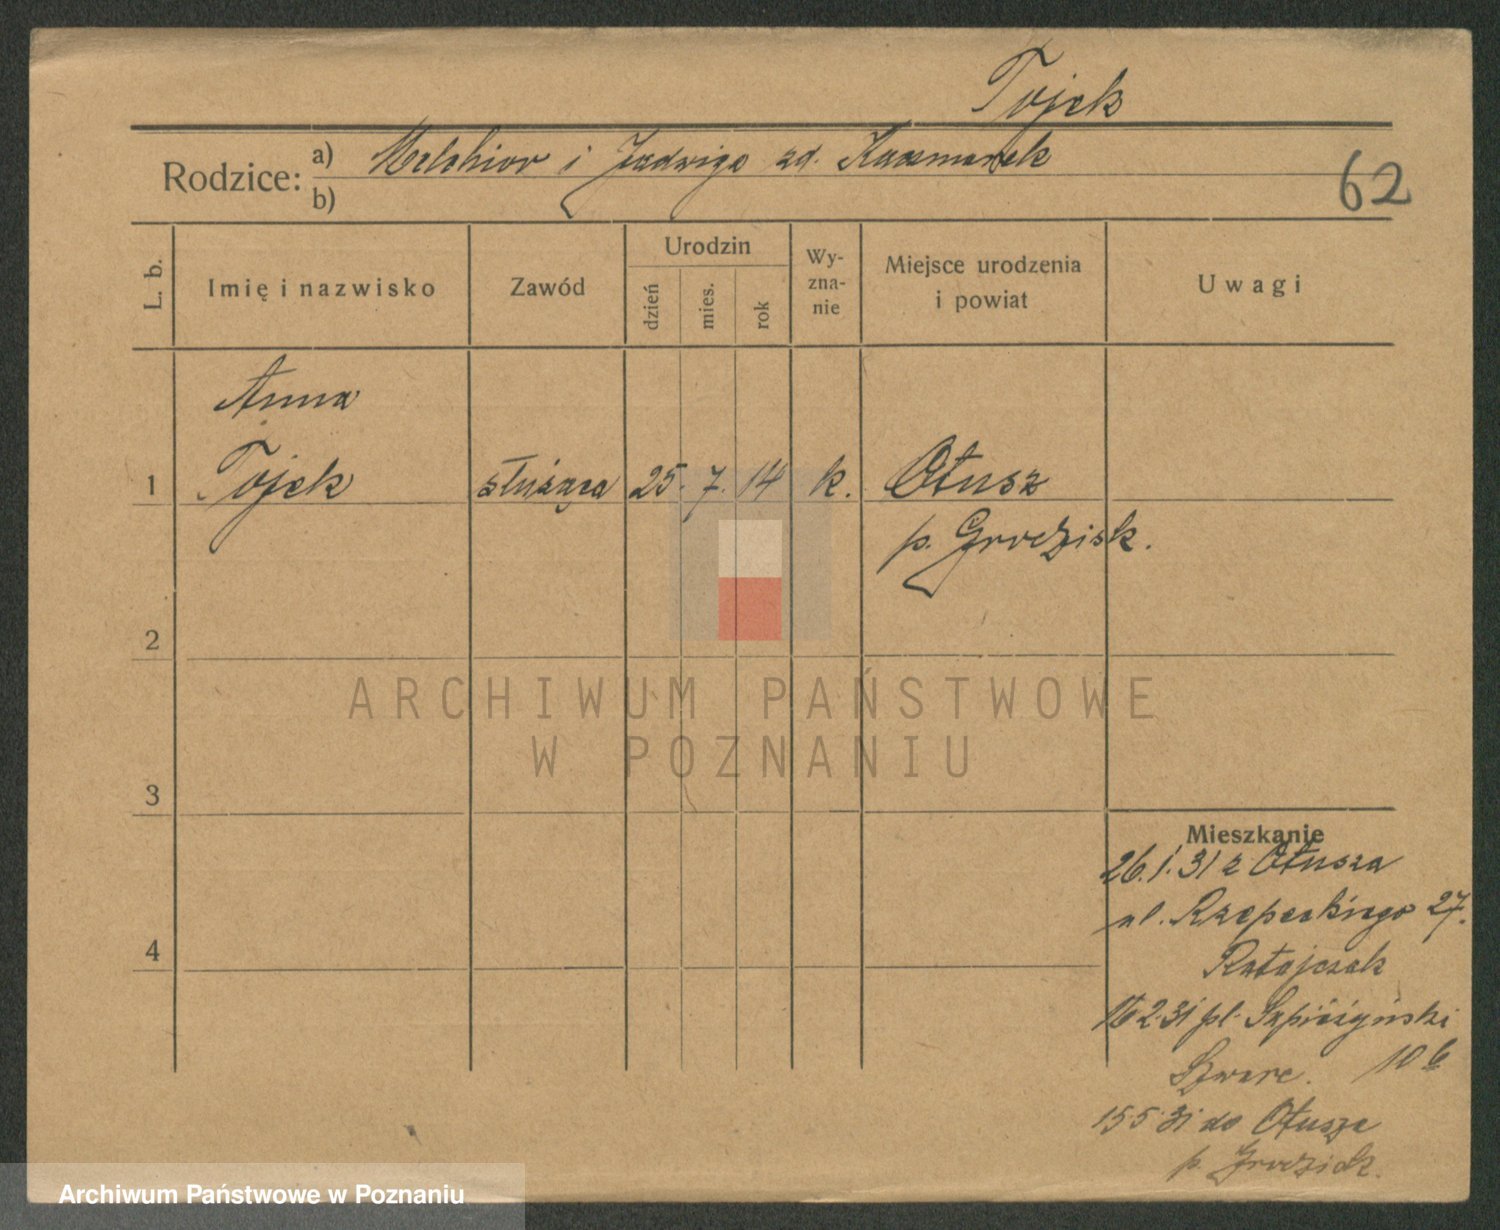 Tojek
Rodzice: a) Melchior i Jadwiga zd. Kaczmarek
b)
62
L. b.
Imię i nazwisko
Zawód
Urodzin
dzień
mies.
rok
Wy-
zna-
nie
Miejsce urodzenia
i powiat
Uwagi
Anna
1 Tojek służąca 25. 7. 14 k. Otusz
p. Grodzisk.
2
ARCHIWUM PAŃSTWOWE
W POZNANIU
3
Mieszkanie
26.1.31 z Otusza
ul. Rzepeckiego 27.
4
Ratajczak
2.31 pl. Sapieżyński
10 b
Szwarc.
15.5.31 do Otusza
p. Grodzisk.
Archiwum Państwowe w Poznaniu